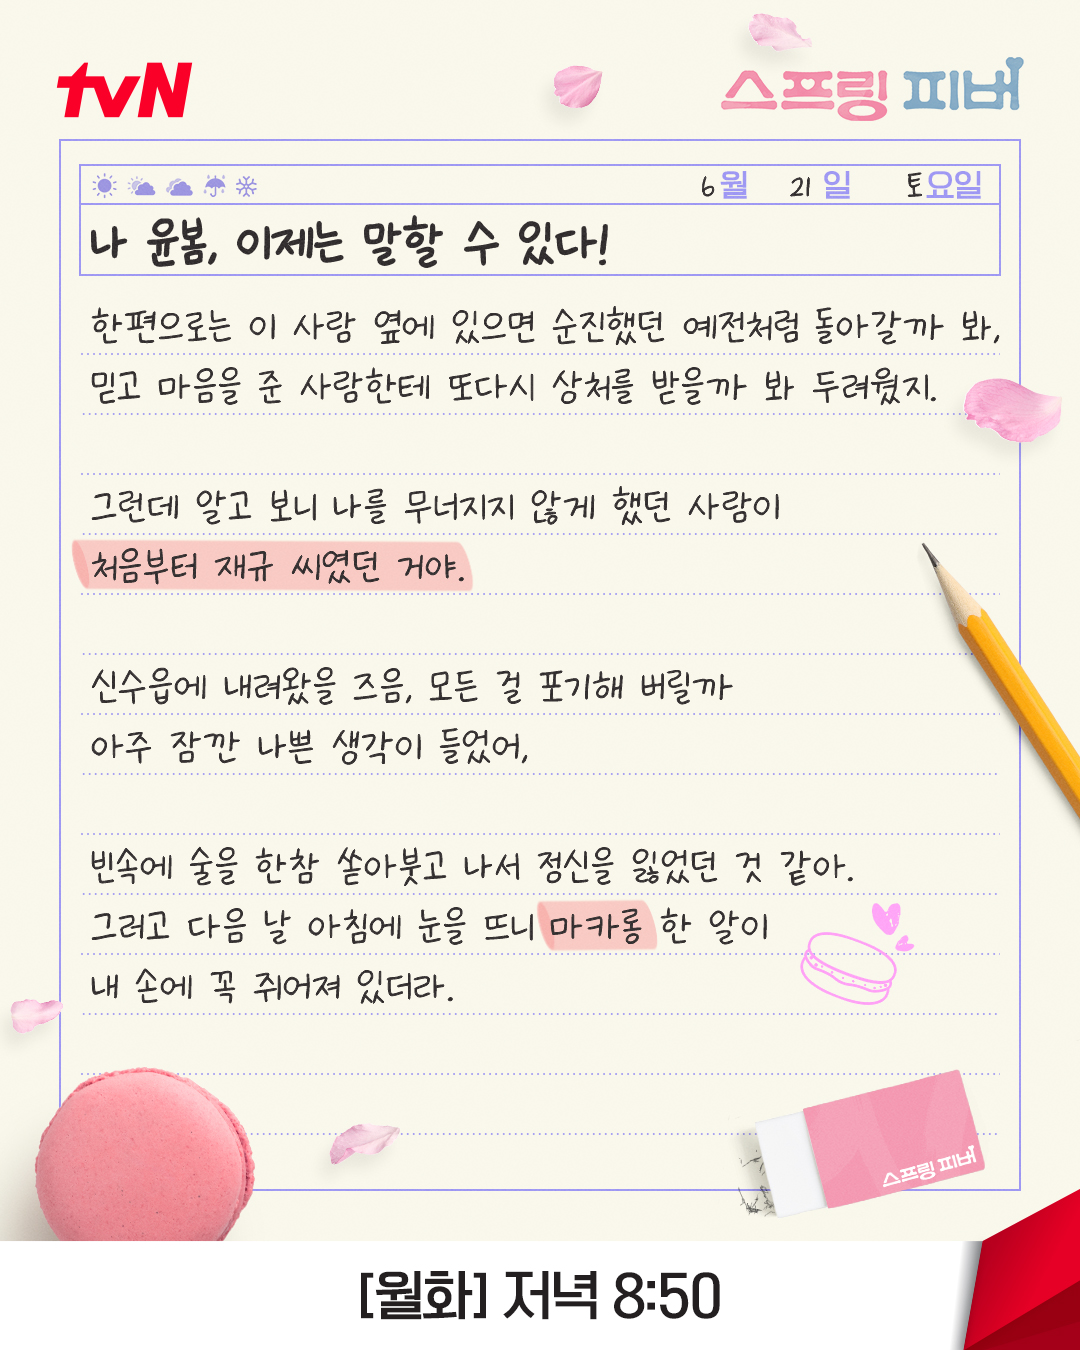 tvN
스프링 피버
6월 21일 토요일
나 윤봄, 이제는 말할 수 있다!
한편으로는 이 사람 옆에 있으면 순진했던 예전처럼 돌아갈까 봐,
믿고 마음을 준 사람한테 또다시 상처를 받을까 봐 두려웠지.
그런데 알고 보니 나를 무너지지 않게 했던 사람이
처음부터 재규 씨였던 거야.
신수읍에 내려왔을 즈음, 모든 걸 포기해 버릴까
아주 잠깐 나쁜 생각이 들었어,
빈속에 술을 한참 쏟아붓고 나서 정신을 잃었던 것 같아.
그러고 다음 날 아침에 눈을 뜨니 마카롱 한 알이
내 손에 꼭 쥐어져 있더라.
스프링 피버
[월화] 저녁 8:50